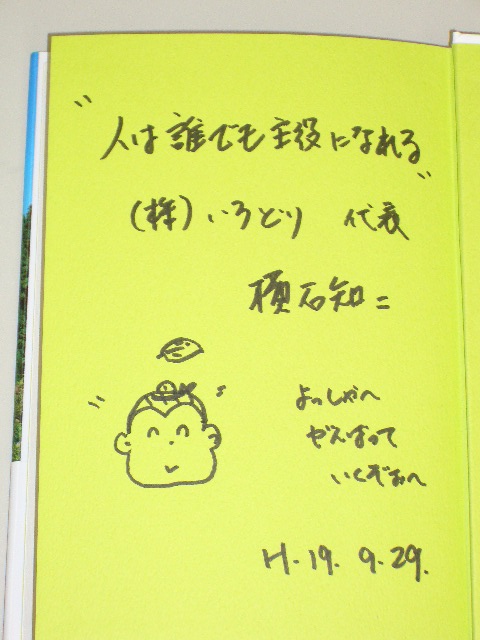 "人は誰でも主役になれる"
(株)いろどり 代表
横石知二
よっしゃへ
がんばって
いくぞぉへ
H.19. 9.29.